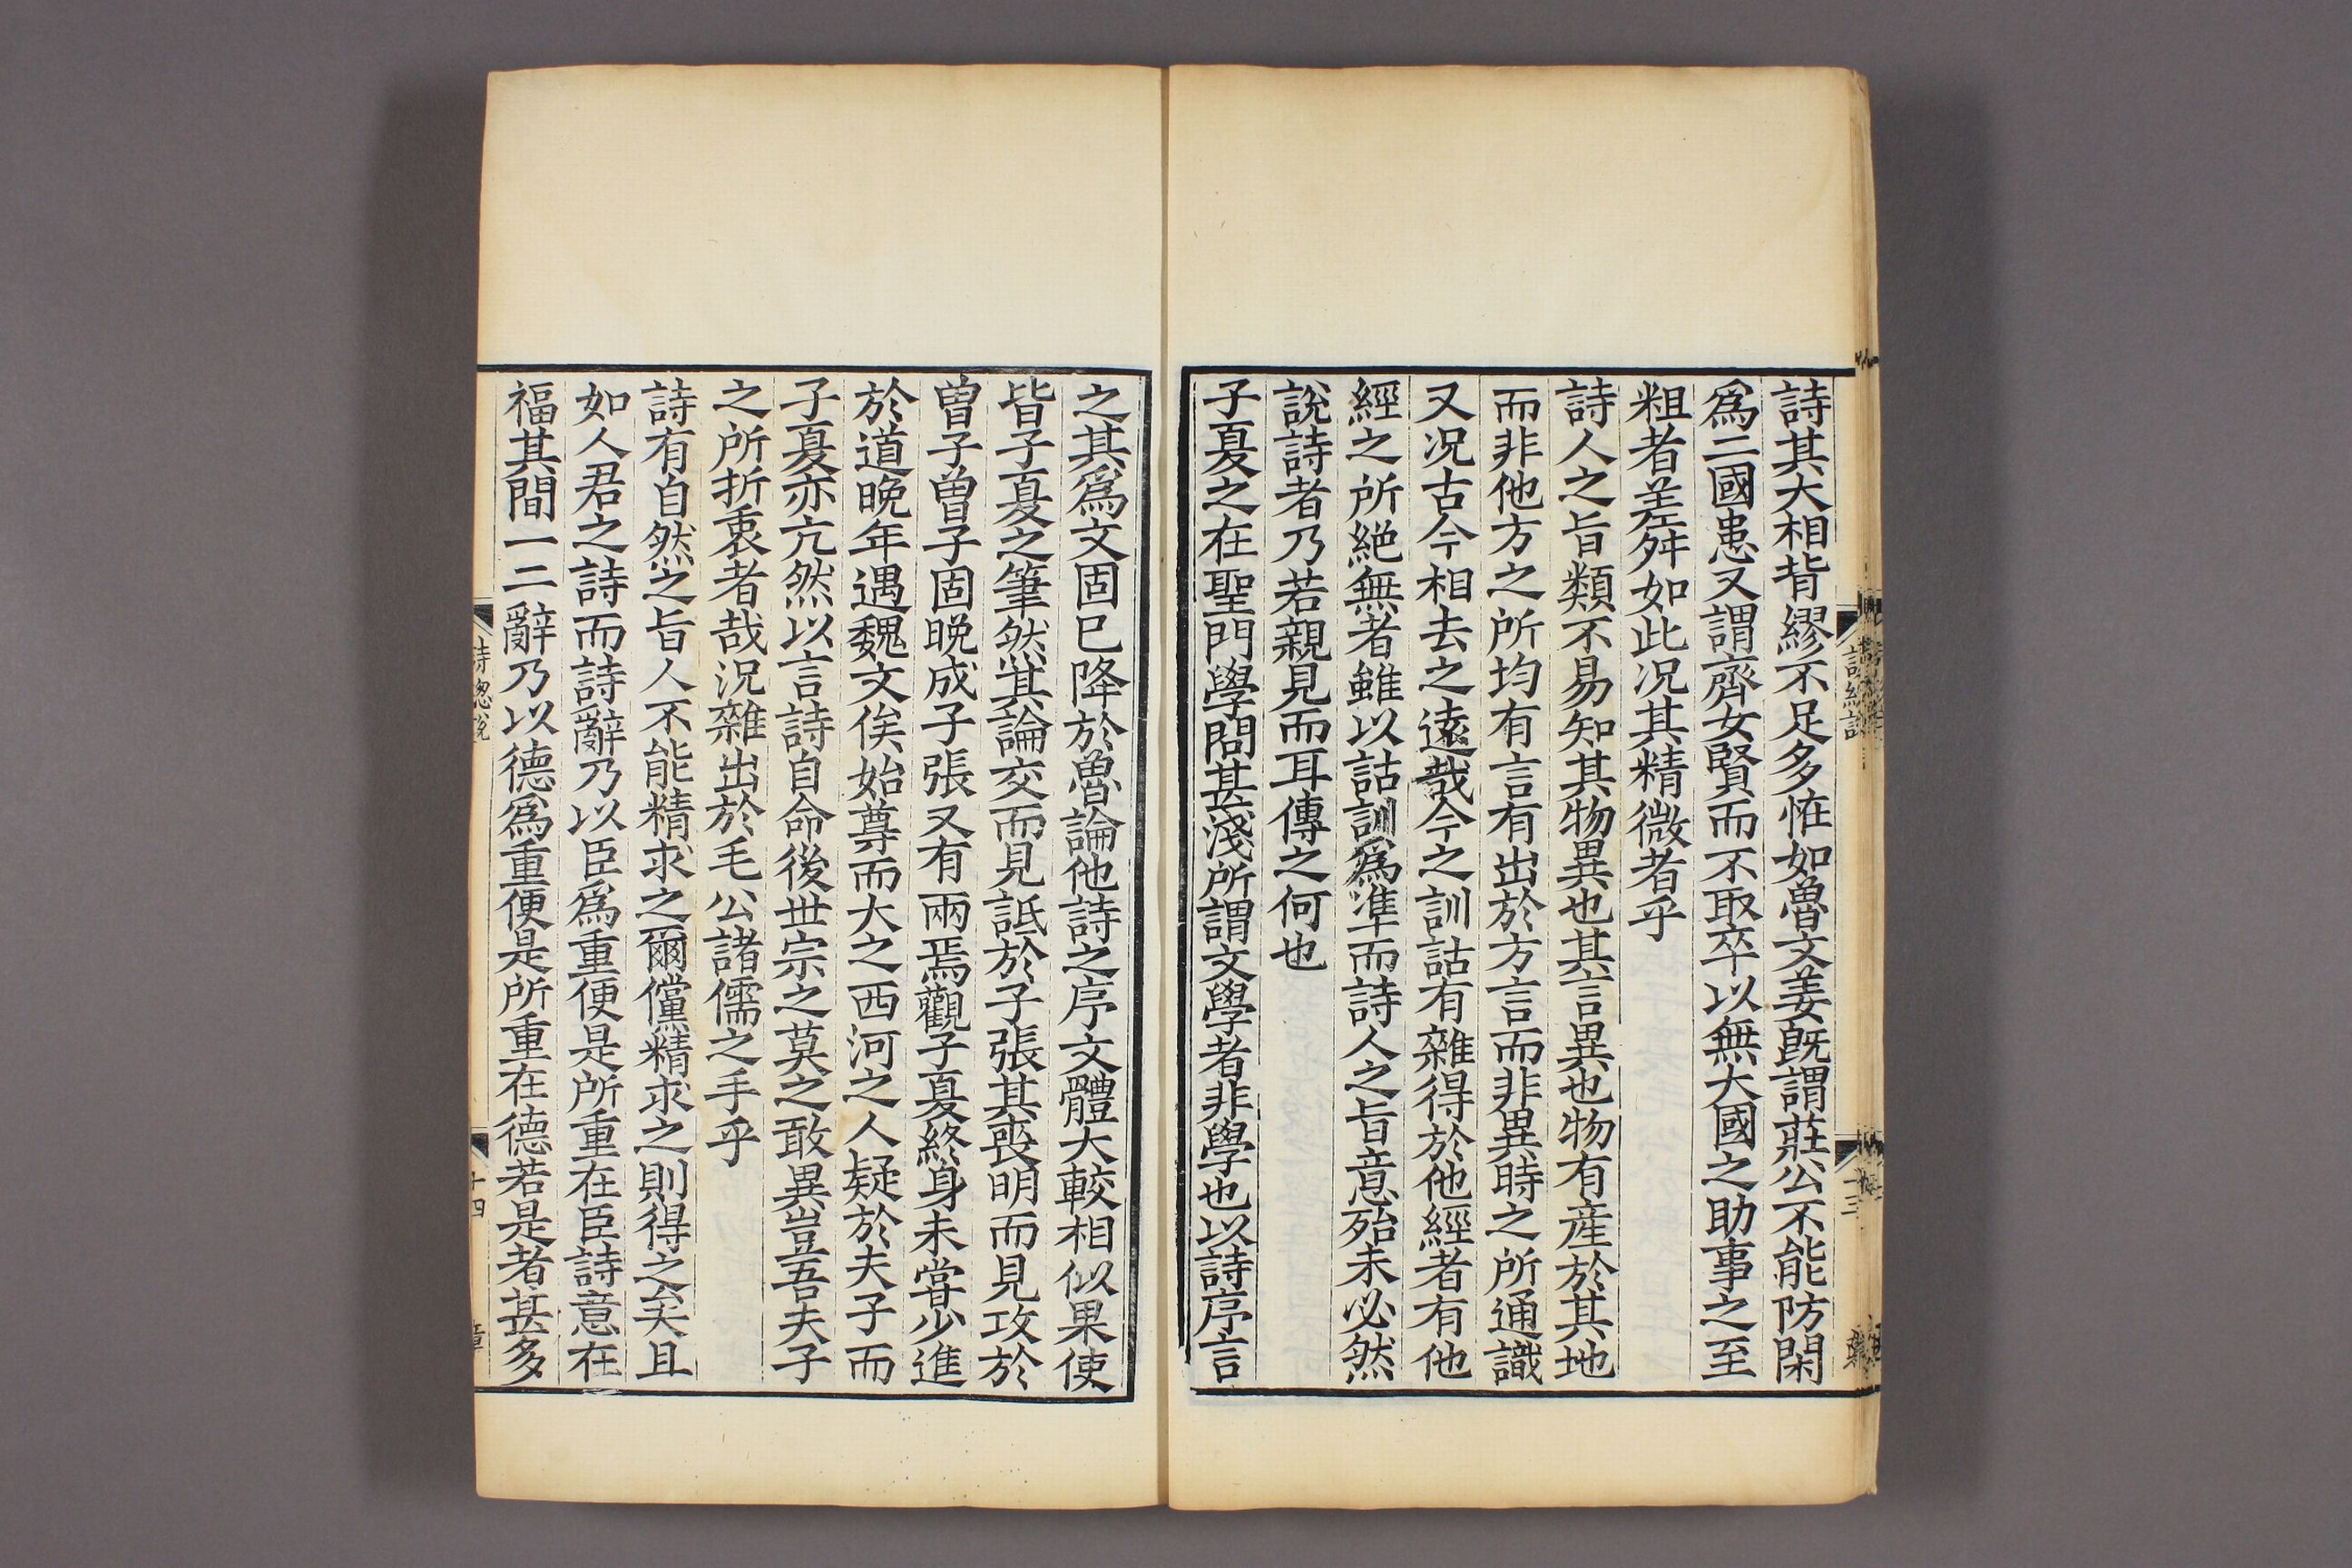 詩其大相背繆不足多恠如魯文姜旣謂莊公不能防閑
爲二國患又謂齊女賢而不取卒以無大國之助事之至
粗者差舛如此况其精微者乎
詩人之旨類不易知其物異也其言異也物有産於其地
而非他方之所均有言有出於方言而非異時之所通識
又况古今相去之遠哉今之訓詁有雜得於他經者有他
經之所絕無者雖以詁訓爲準而詩人之旨意殆未必然
說詩者乃若親見而耳傳之何也
子夏之在聖門學問甚淺所謂文學者非學也以詩序言
之其爲文固已降於魯論他詩之序文體大較相似果使
皆子夏之筆然其論交而見詆於子張其喪明而見攻於
曾子曾子固晚成子張又有兩焉觀子夏終身未嘗少進
於道晚年遇魏文侯始尊而大之西河之人疑於夫子而
子夏亦亢然以言詩自命後世宗之莫之敢異豈吾夫子
之所折衷者哉況雜出於毛公諸儒之手乎
詩有自然之旨人不能精求之爾儻精求之則得之矣且
如人君之詩而詩辭乃以臣爲重便是所重在臣詩意在
福其間一二辭乃以德爲重便是所重在德若是者甚多
詩總說
十四
章